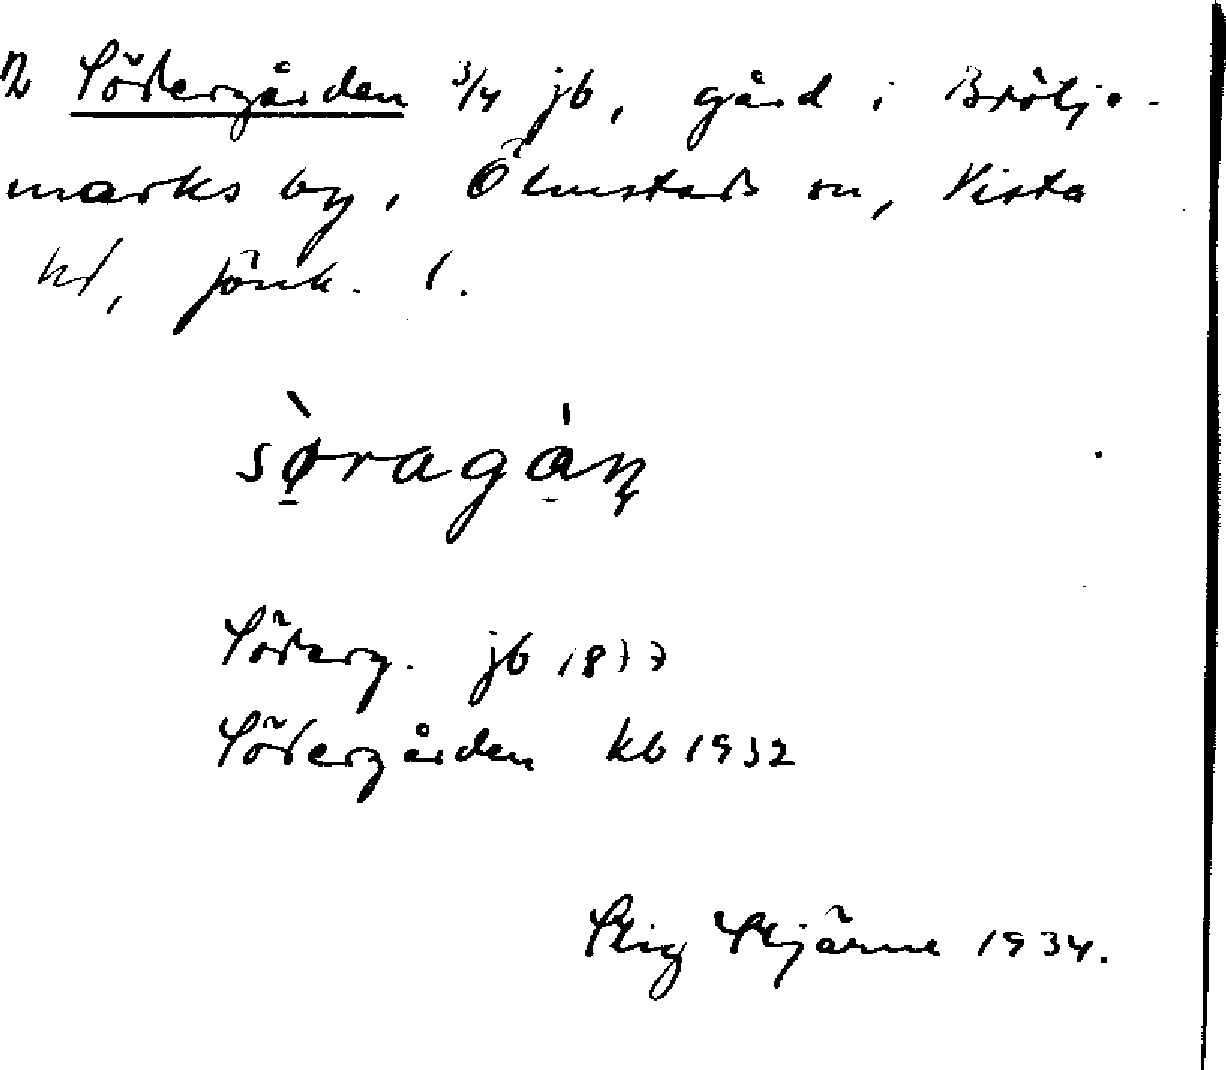 2 Södergården 3/4 jb, gård i Brötje-
marks by, Ölmstads sn, Vista
hd, Jönk. l.
sø̀ragán
Söderg. jb 1877
Södergården kb 1932
Stig Stjärne 1934.